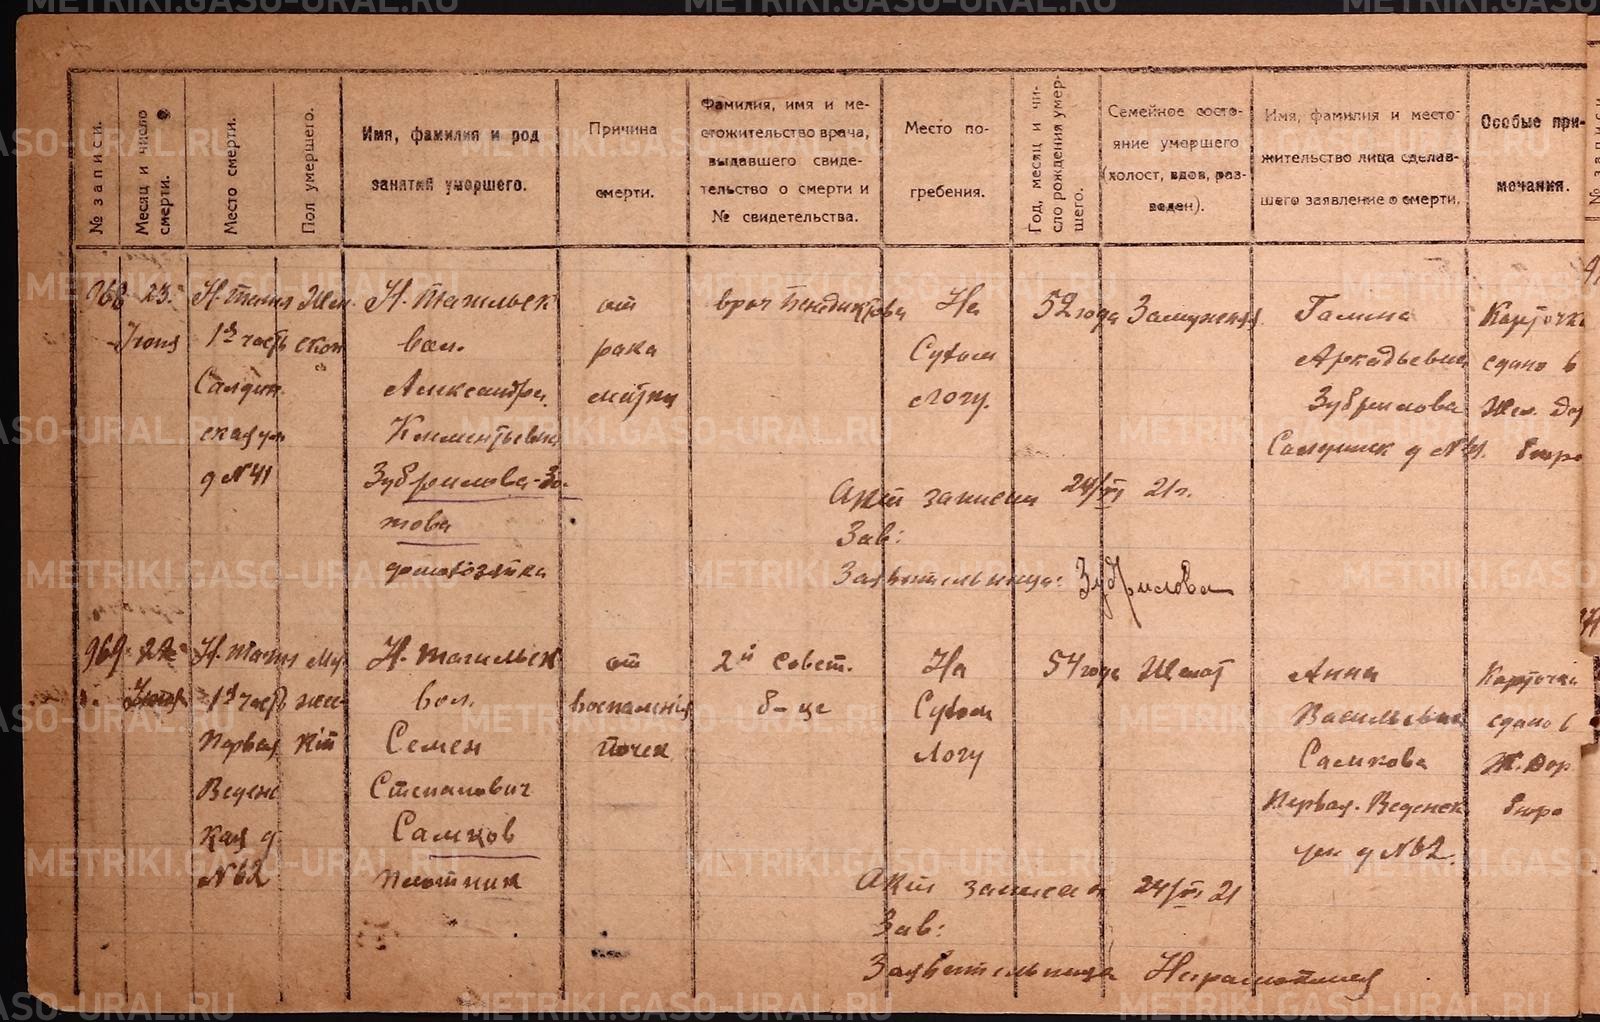 № записи.
Месяц и число
смерти.
Место смерти.
Пол умершего.
Имя, фамилия и род
занятий умершего.
Причина
смерти.
Фамилия, имя и ме-
стожительство врача,
выдавшего свиде-
тельство о смерти и
№ свидетельства.
Место по-
гребения.
Год, месяц и чи-
сло рождения умер-
шего.
Семейное состо-
яние умершего
(холост, вдов, раз-
веден).
Имя, фамилия и место-
жительство лица сделав-
шего заявление о смерти.
Особые при-
мечания.
968
23.
Июня
Н. Тагил
1я часть
Салдин.
ская ул
д №41
Жен
ской
Н. Тагильск
вол.
Александра
Климентьевна
Зубрилова-Зо-
това
домохозяйка
от
рака
матки
врач Бендиктова
На
Сухом
Логу.
52 года
Замужняя
Галина
Аркадьевна
Зубрилова
Салдинск д №41.
Карточка
сдано в
Жел. Дор
бюро
Акт записан 24/VI 21г.
Зав:
Заявительница: Зубрилова
969
22
Июня
Н. Тагил
1я часть
Первая
Веденс
кая д
№62
Му-
жес-
кий
Н. Тагильск
вол.
Семен
Степанович
Самков
плотник
от
воспаления
почек
2й совет.
б-це
На
Сухом
Логу
54 года
Женат
Анна
Васильевна
Самкова
Первая. Веденск
ул д №62.
Карточка
сдано в
Ж. Дор
бюро
Акт записан 24/VI 21
Зав:
Заявительница Неграмотная
METRIKI.GASO-URAL.RU